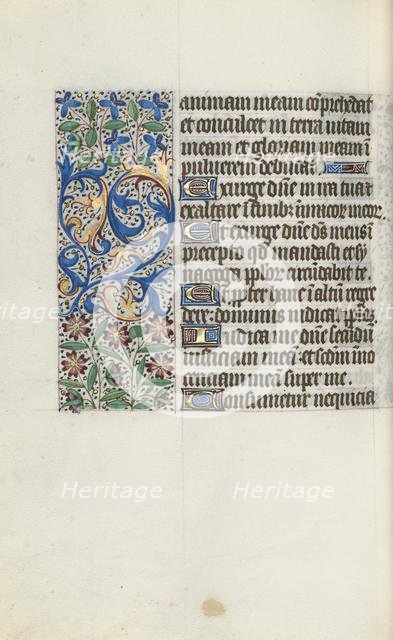 animam meam cōprehedat
et conculcet in terra uitam
meam et gloriam meam ī
puluerem deducat.
Exurge dn̄e in ira tua et
exaltare ī finibꝫ inimicor meor.
Et exurge dn̄e ds̄ meus ī
precepto qd̄ mandasti et sy
nagoga plor circūdabit te.
Et propter hanc ī altū regre
dere: dominus iudicat pplos.
Iudica me dn̄e scdm̄
iusticiam meā et scdm̄ ino
cenciam meā super me.
Consumetur nequicia
Heritage
Heritage
Heritage
Heritage
Heritage
Heritage